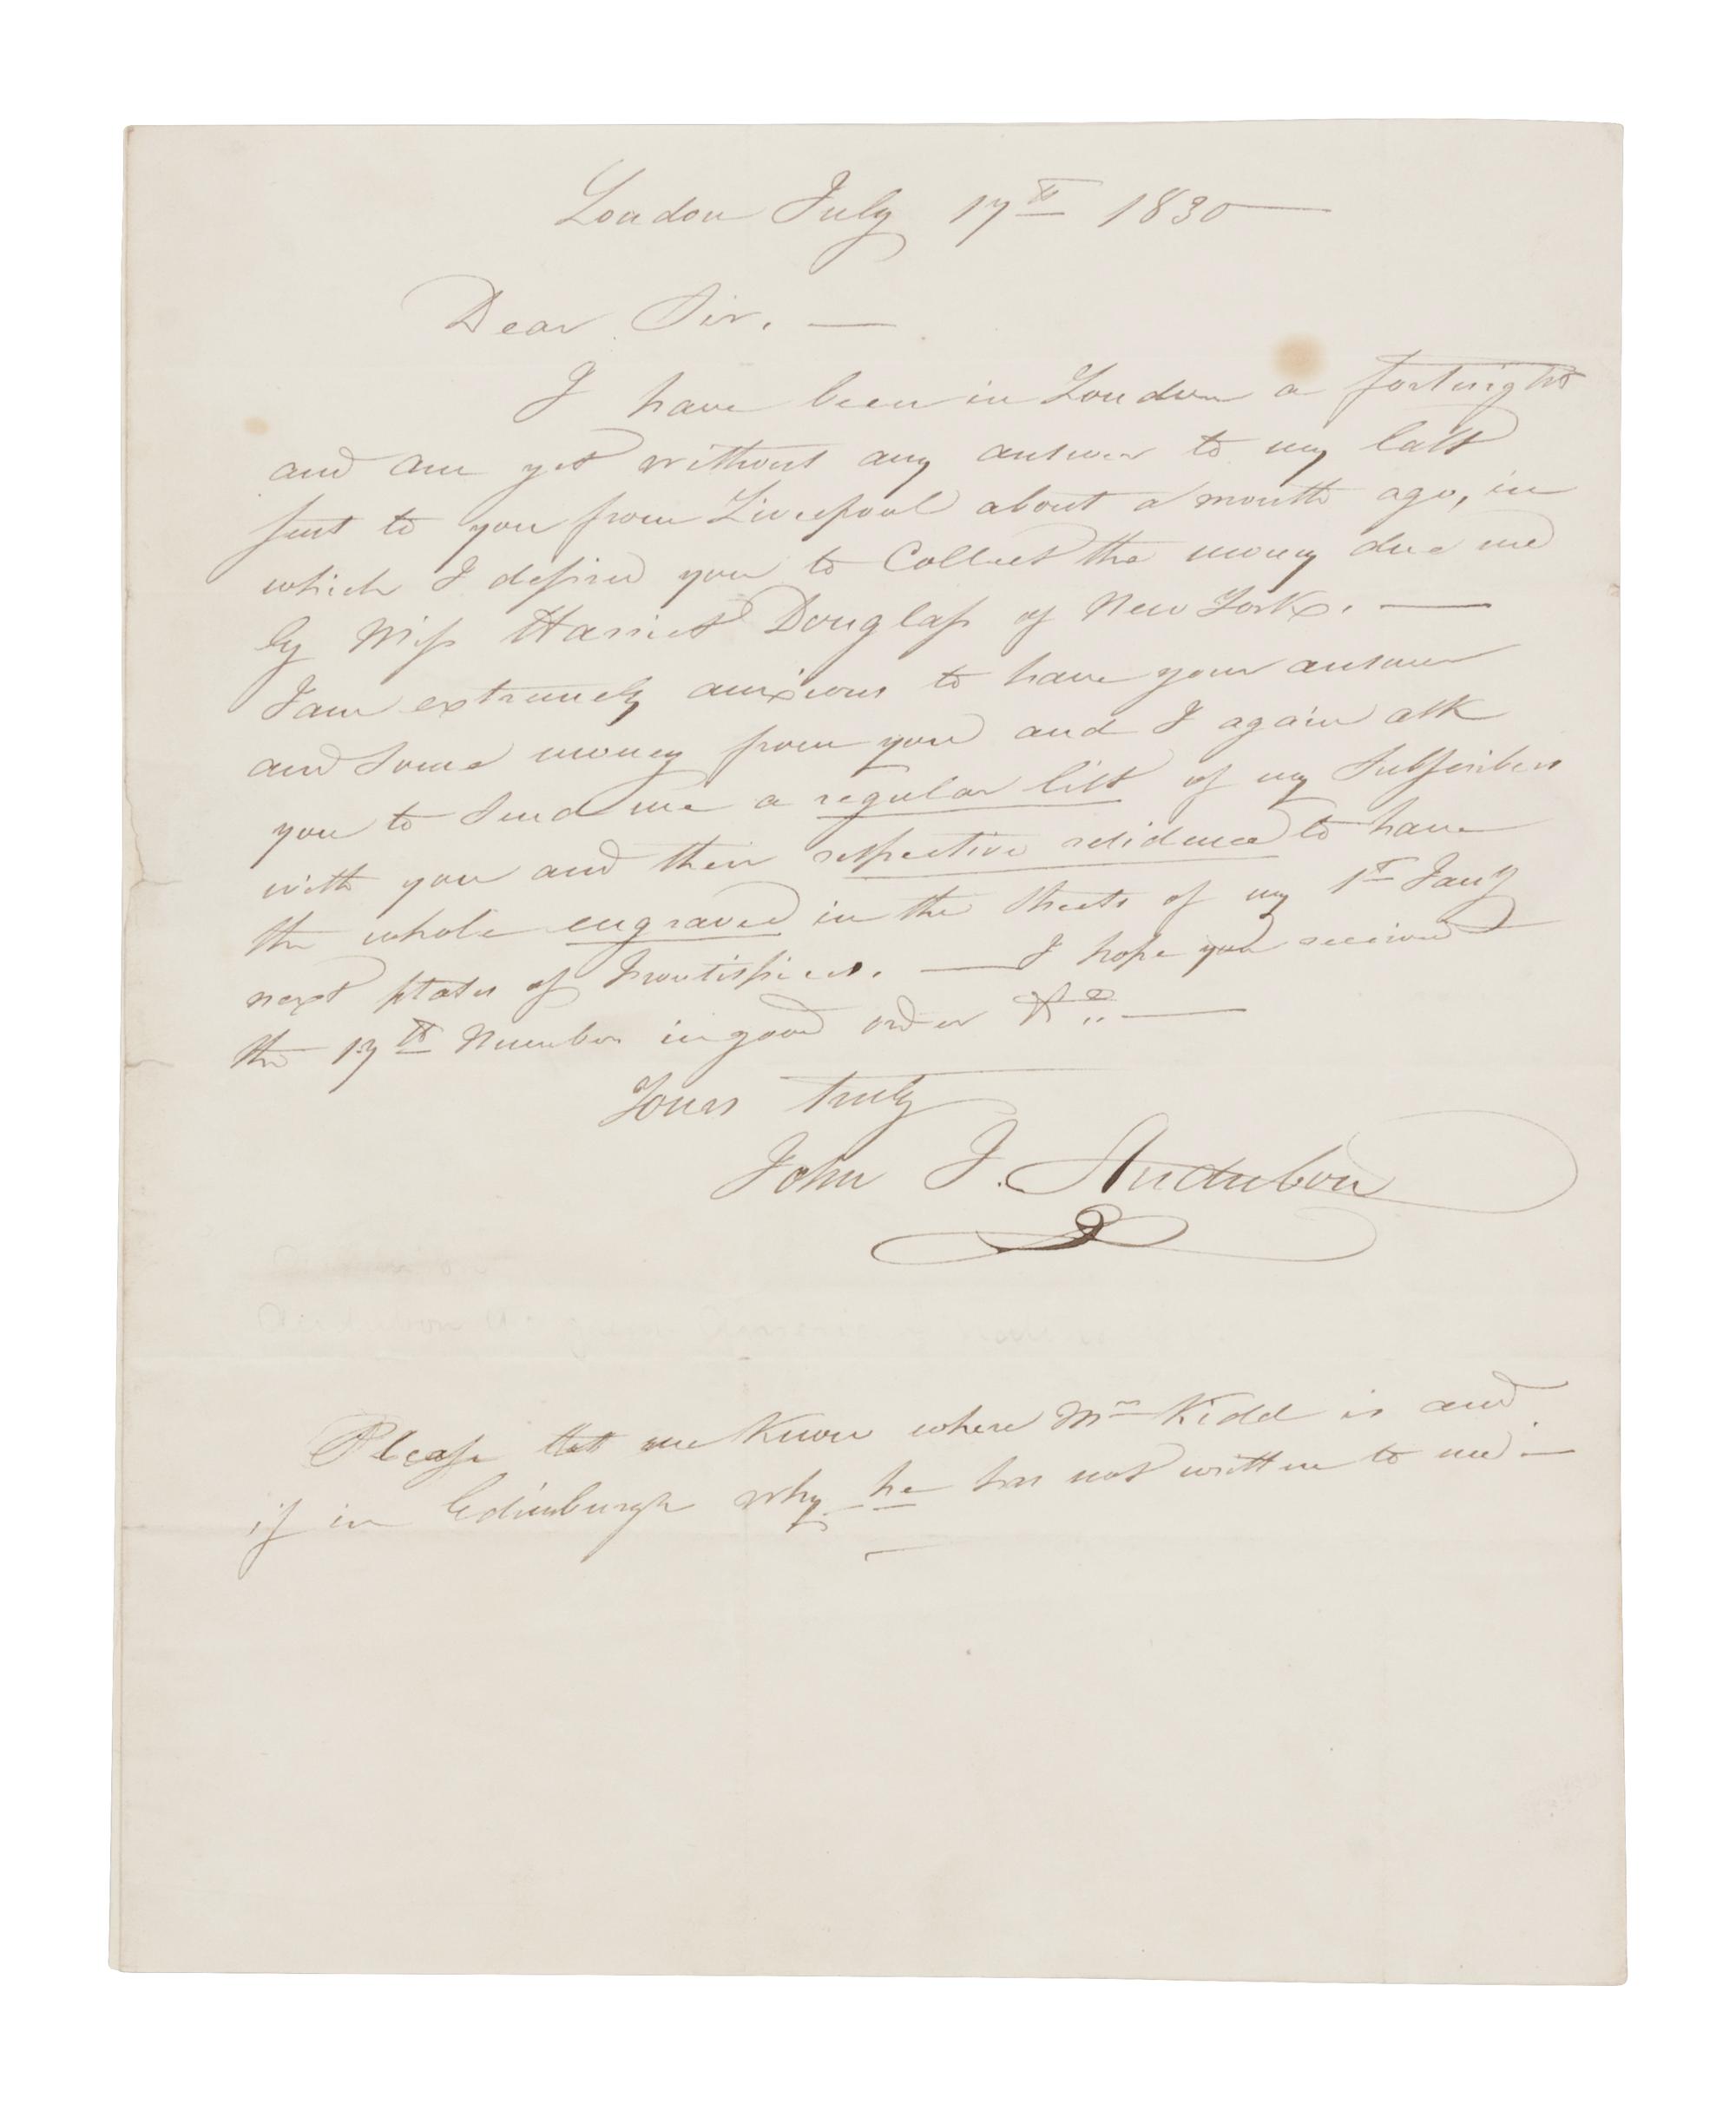 London July 17th 1830 —
Dear Sir. —
I have been in London a fortnight
and am yet without any answer to my last
sent to you from Liverpool about a month ago, in
which I desired you to Collect the money due me
by Miss Harriet Douglass of New York. —
I am extremely anxious to have your answer
and some money from you and I again ask
you to send me a regular list of my Subscribers
with you and their respective residence to have
the whole engraved in the sheets of my 1st Jany
next plates of frontispieces. — I hope you received
the 17th Number in good order &c. —
Yours truly
John J. Audubon
Please let me Know where Mr Kidd is and
if in Edinburgh why he has not written to me. —